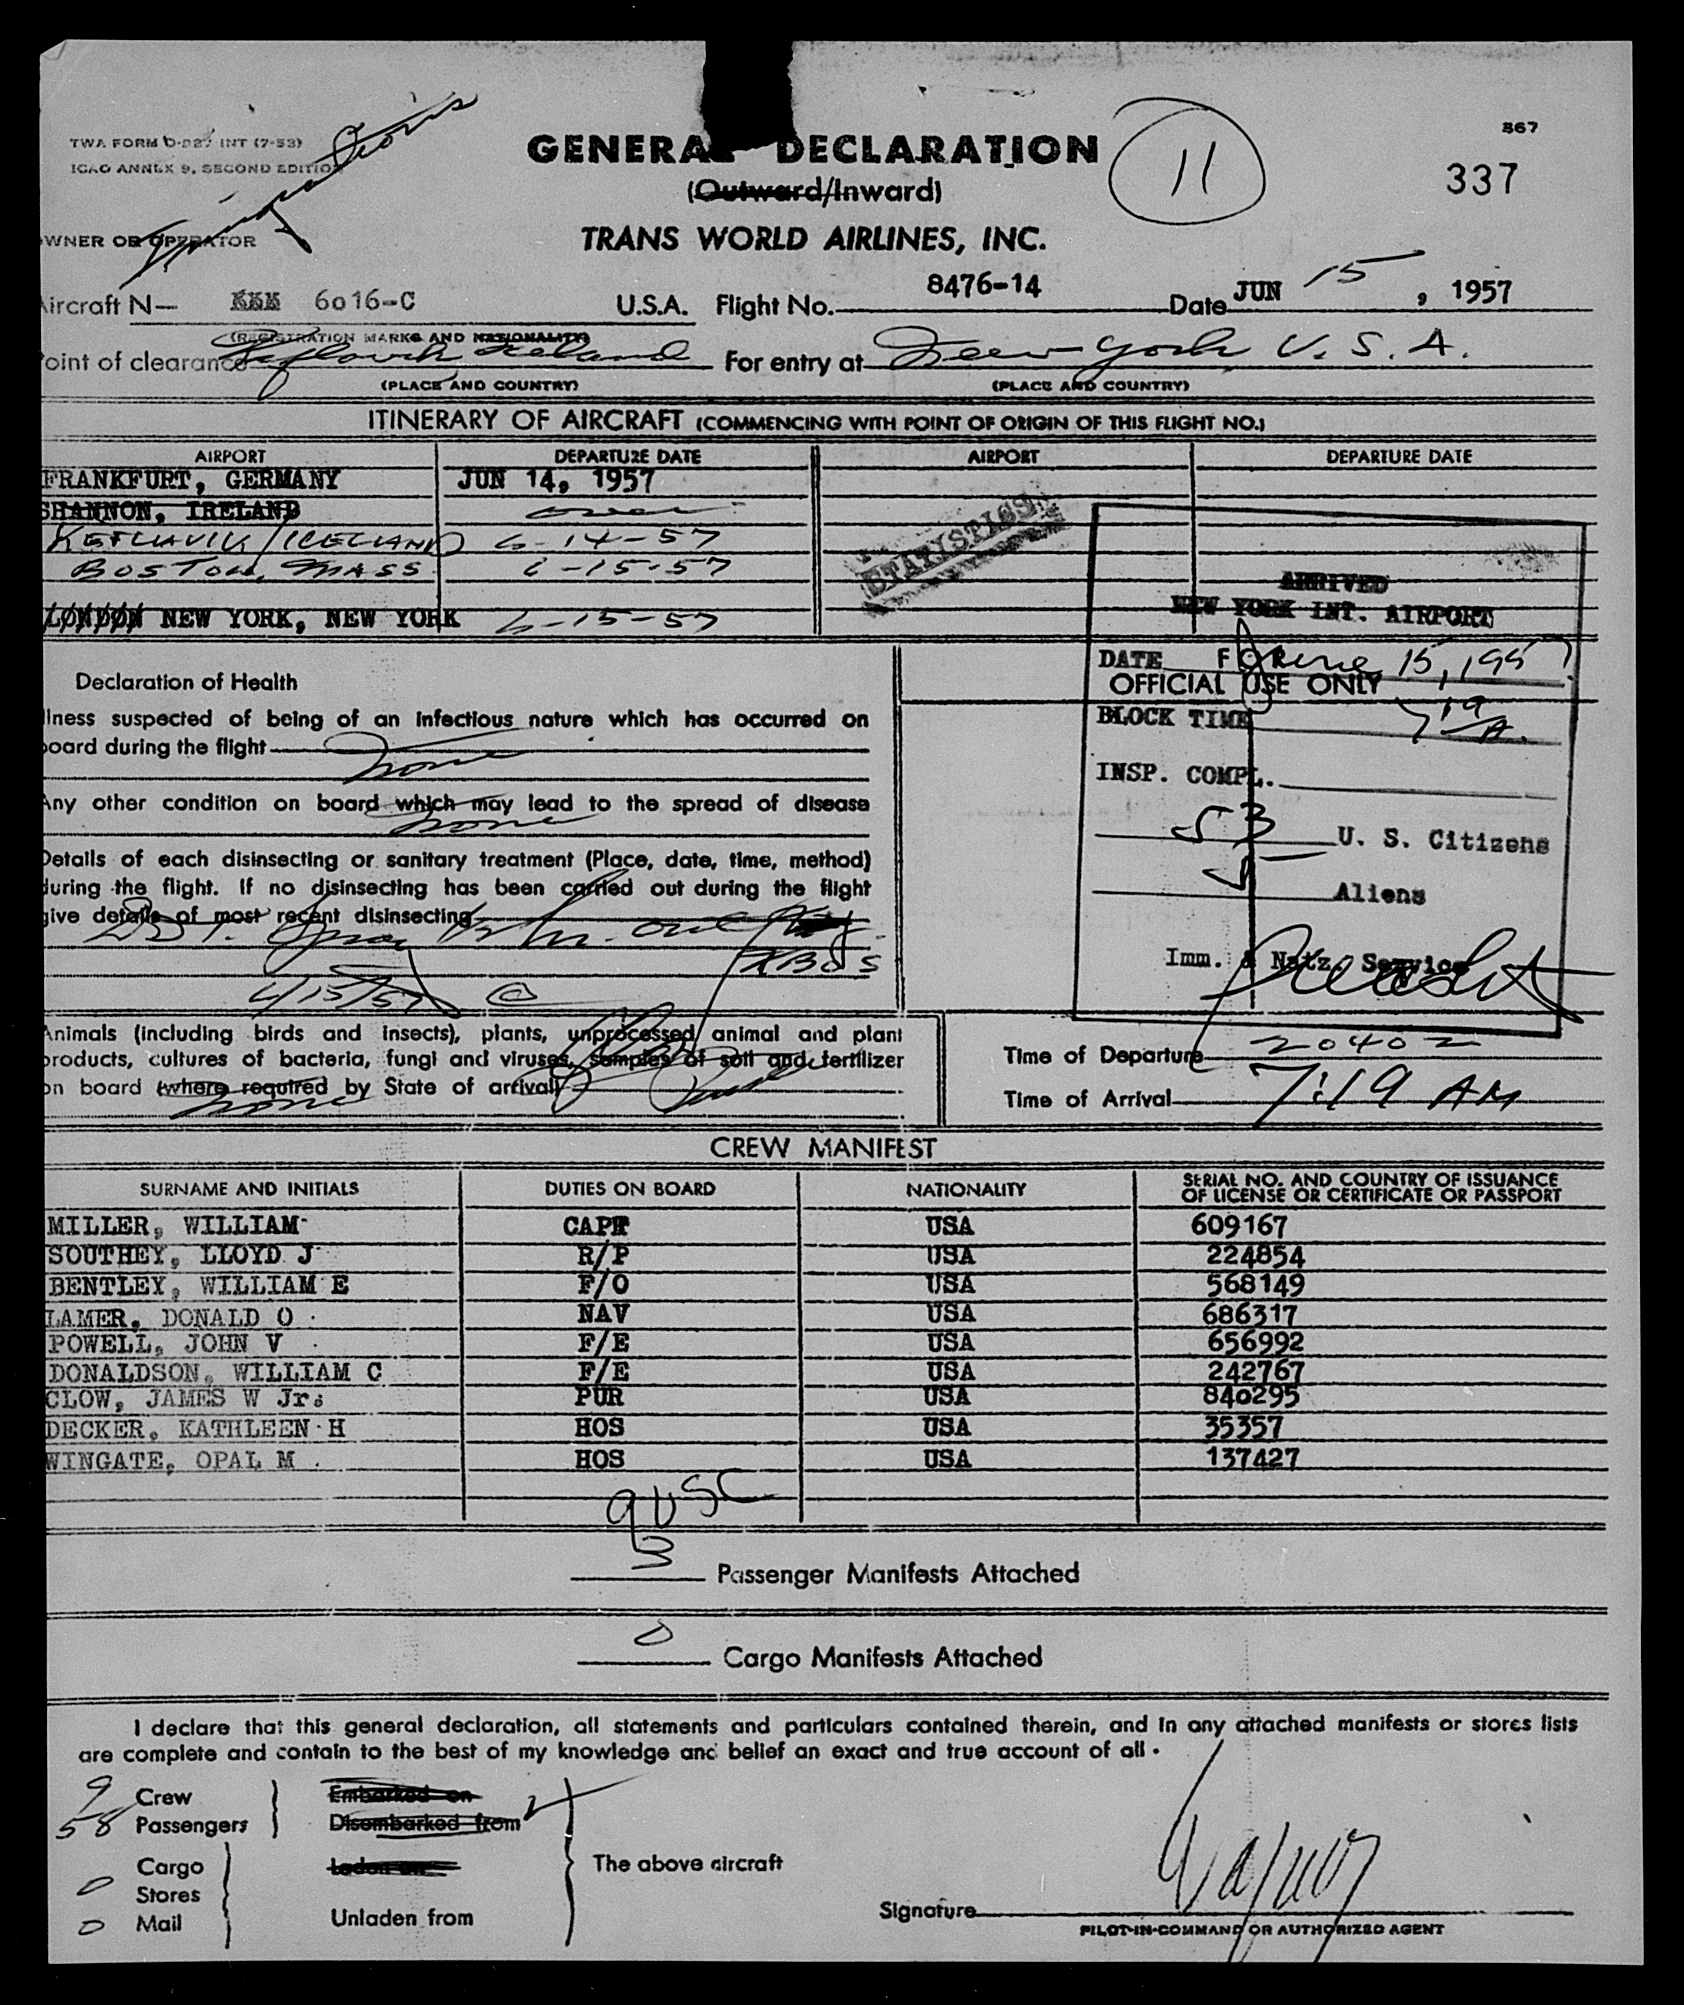 867
TWA FORM O-227 INT (7-53)
ICAO ANNEX 9, SECOND EDITION
GENERAL DECLARATION
11
337
(Outward/Inward)
OWNER OR OPERATOR
TRANS WORLD AIRLINES, INC.
Aircraft N— 6016-C U.S.A. Flight No. 8476-14 Date JUN 15, 1957
(REGISTRATION MARKS AND NATIONALITY)
Point of clearance Keflavik Iceland For entry at New York U.S.A.
(PLACE AND COUNTRY) (PLACE AND COUNTRY)
ITINERARY OF AIRCRAFT (COMMENCING WITH POINT OF ORIGIN OF THIS FLIGHT NO.)
AIRPORT DEPARTURE DATE AIRPORT DEPARTURE DATE
FRANKFURT, GERMANY JUN 14, 1957
SHANNON, IRELAND over
KEFLAVIK/ICELAND 6-14-57
BOSTON, MASS 6-15-57
LONDON NEW YORK, NEW YORK 6-15-57
STATISTICS
ARRIVED
NEW YORK INT. AIRPORT
DATE June 15, 1957
FOR
OFFICIAL USE ONLY
BLOCK TIME 7 19 A.
INSP. COMPL.
53 U. S. Citizens
5 Aliens
Imm. & Natz. Service
Declaration of Health
Illness suspected of being of an infectious nature which has occurred on
board during the flight
none
Any other condition on board which may lead to the spread of disease
none
Details of each disinsecting or sanitary treatment (Place, date, time, method)
during the flight. If no disinsecting has been carried out during the flight
give details of most recent disinsecting
BOS
6/15/57
Animals (including birds and insects), plants, unprocessed animal and plant
products, cultures of bacteria, fungi and viruses, samples of soil and fertilizer
on board (where required by State of arrival)
none
Time of Departure 2040Z
Time of Arrival 7:19 AM
CREW MANIFEST
SURNAME AND INITIALS DUTIES ON BOARD NATIONALITY SERIAL NO. AND COUNTRY OF ISSUANCE
OF LICENSE OR CERTIFICATE OR PASSPORT
MILLER, WILLIAM CAPT USA 609167
SOUTHEY, LLOYD J R/P USA 224854
BENTLEY, WILLIAM E F/O USA 568149
LAMER, DONALD O NAV USA 686317
POWELL, JOHN V F/E USA 656992
DONALDSON, WILLIAM C F/E USA 242767
CLOW, JAMES W Jr. PUR USA 840295
DECKER, KATHLEEN H HOS USA 35357
WINGATE, OPAL M HOS USA 137427
9 USC
3 Passenger Manifests Attached
0 Cargo Manifests Attached
I declare that this general declaration, all statements and particulars contained therein, and in any attached manifests or stores lists
are complete and contain to the best of my knowledge and belief an exact and true account of all.
9 Crew Embarked on
58 Passengers Disembarked from
Cargo Laden on
The above aircraft
0 Stores
0 Mail Unladen from
Signature
PILOT-IN-COMMAND OR AUTHORIZED AGENT